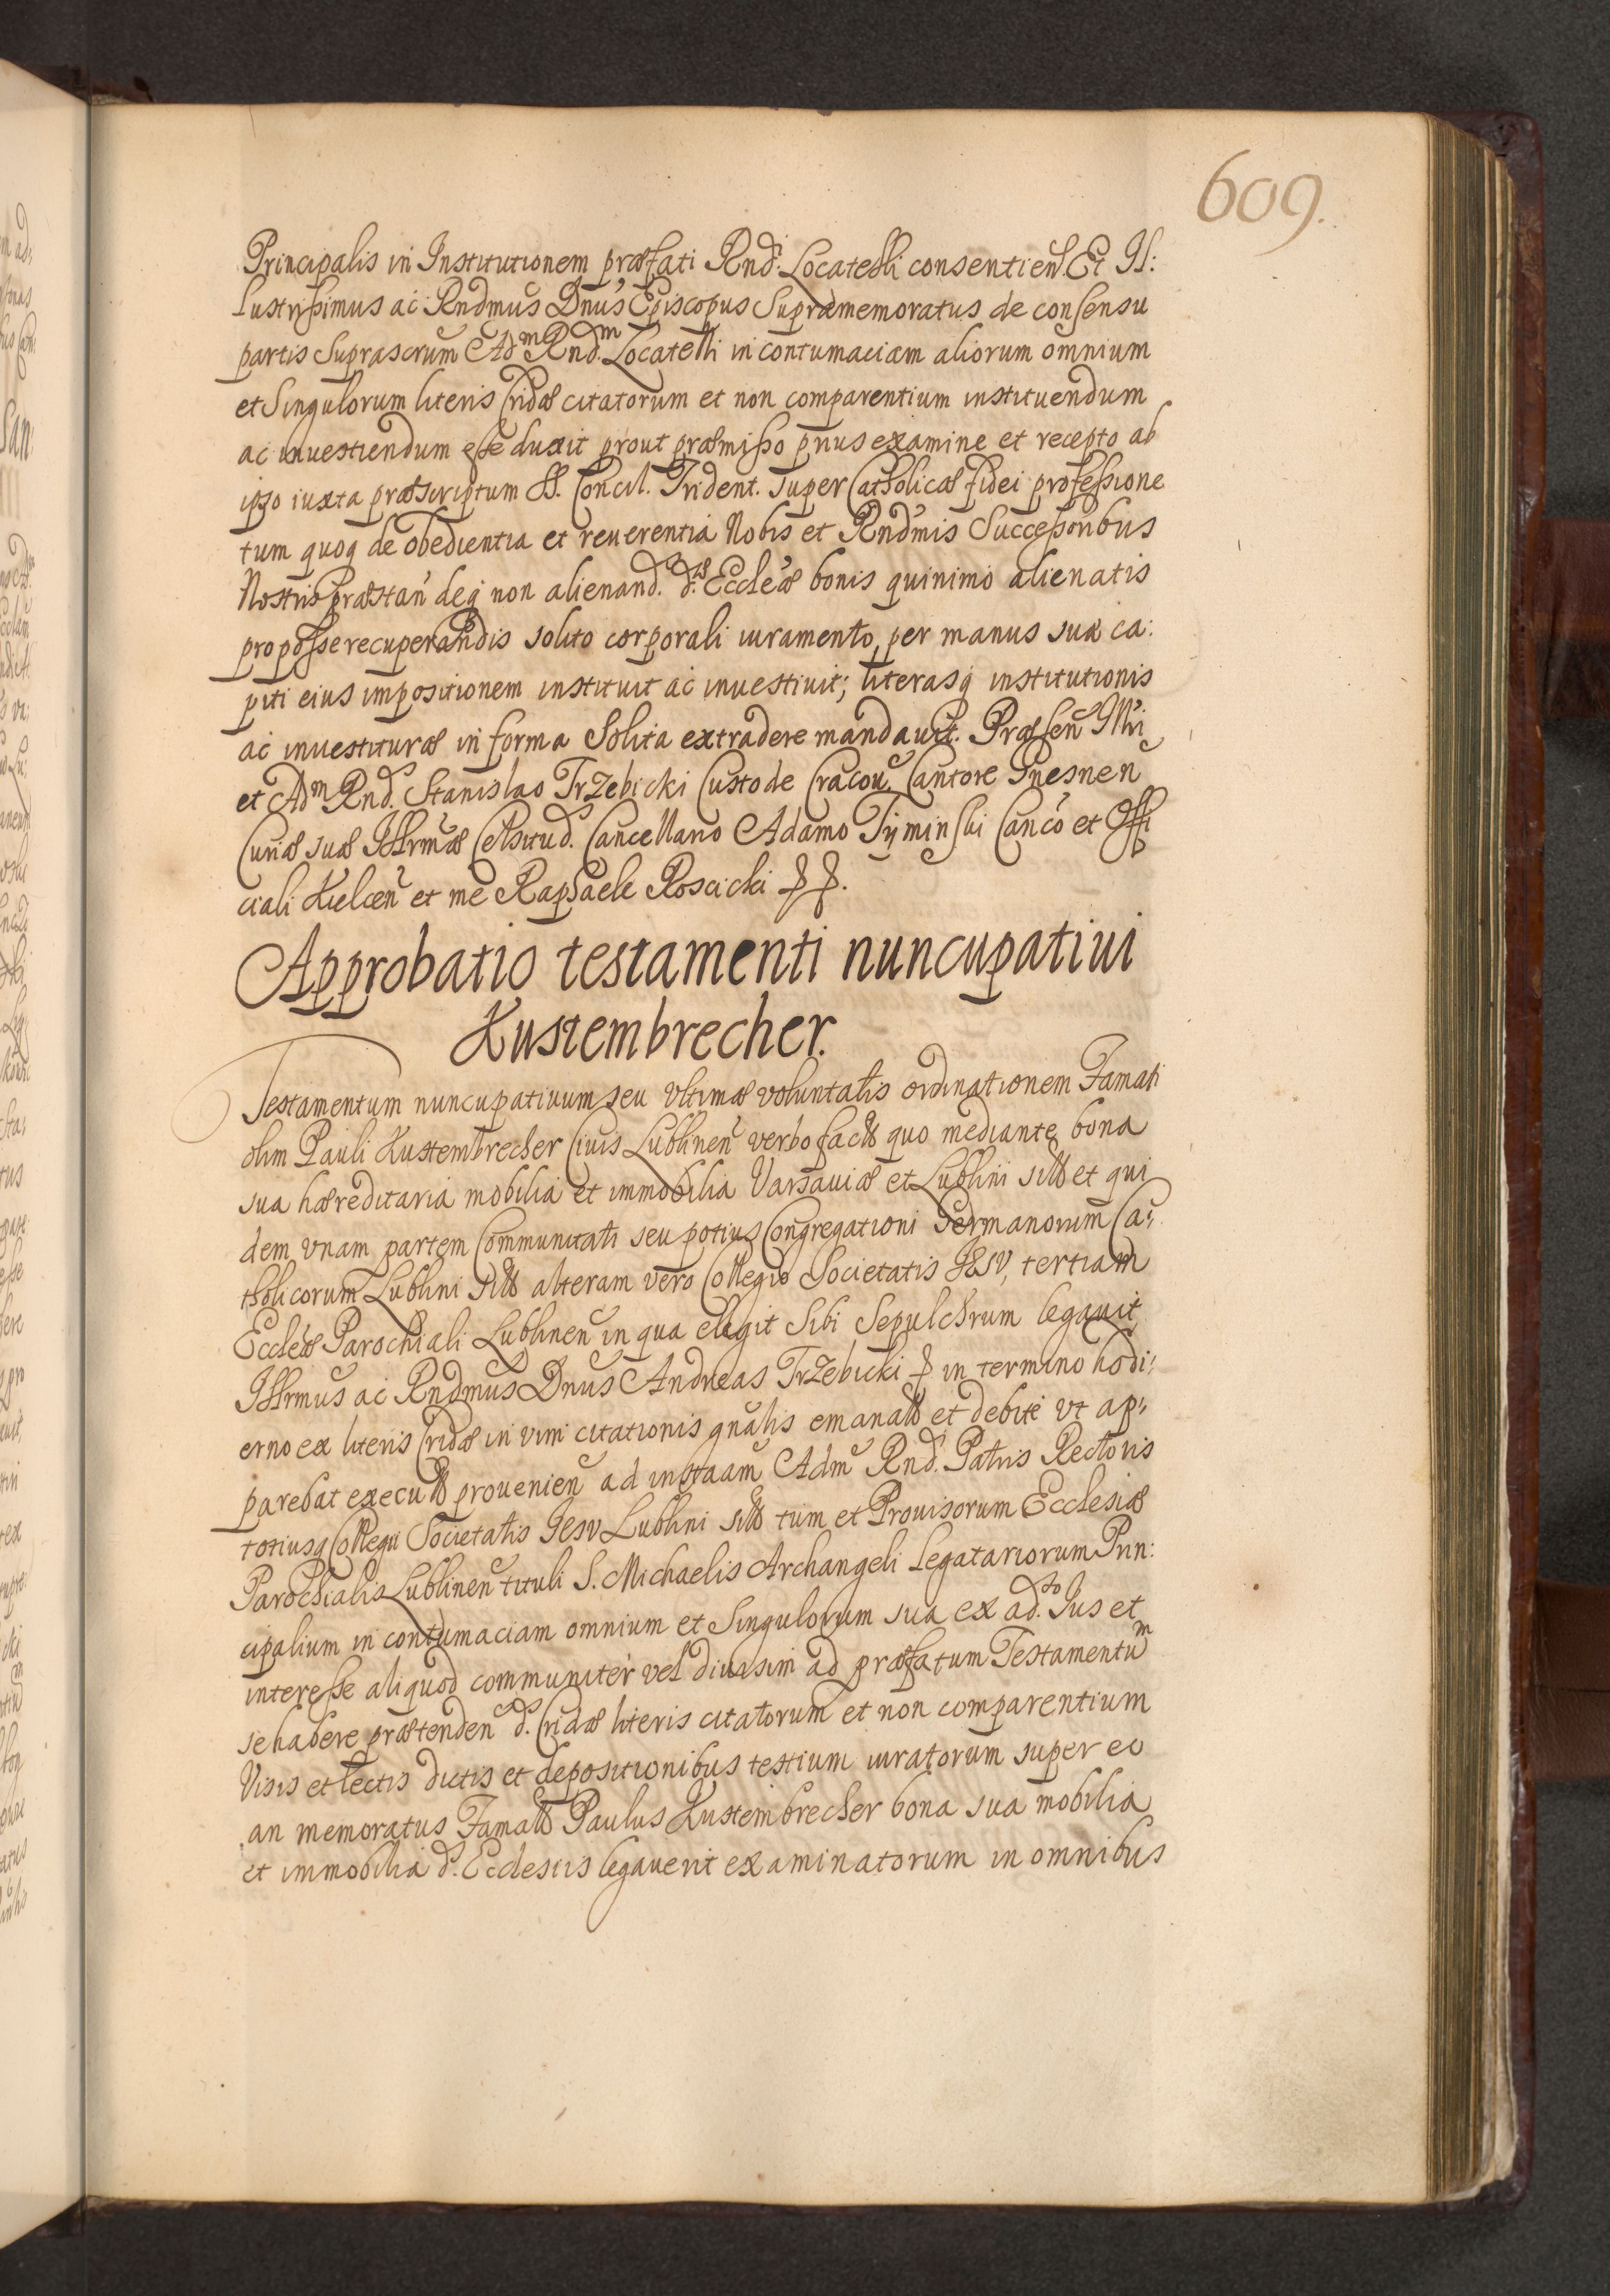 609.
Principalis in Institutionem præfati Rnd: Locatelli consentień. Et Il:
lustrissimus ac Rndmus Dnus Episcopus Supramemoratus de consensu
partis Suprascrum Adm Rnd.m Locatelli in contumaciam aliorum omnium
et Singulorum literis Cridæ citatorum et non comparentium instituendum
ac inuestiendum esse duxit prout præmisso prius examine et recepto ab
ipso iuxta præscriptum S. Concil. Trident. super Catholicæ fidei professione
tum quoq de obedientia et reuerentia Nobis et Rndmis Successoribus
Nostris præstań deq non alienand. d.æ Eccleæ bonis quinimo alienatis
pro posse recuperandis solito corporali iuramento, per manus suæ ca:
piti eius impositionem instituit ac inuestiuit; literasq institutionis
ac inuestituræ in forma Solita extradere mandauit. Præsen Illri
et Adm Rnd. Stanislao Trzebicki Custode Cracou. Cantore Gnesnen
Curiæ suæ Illrmæ Celsitud. Cancellario Adamo Tyminski Canco et Offi
ciali Kielcen et me Raphaele Roscicki
Approbatio testamenti nuncupatiui
Kustembrecher.
Testamentum nuncupatiuum seu vltimæ voluntatis ordinationem Famati
olim Pauli Kustembrecher Ciuis Lublinen verbo fact quo mediante bona
sua hæreditaria mobilia et immobilia Varsauiæ et Lublini sit et qui
dem vnam partem Communitati seu potius Congregationi Germanorum Ca:
tholicorum Lublini sit alteram vero Collegio Societatis IESV, tertiam
Eccleæ Parochiali Lublinen in qua elegit Sibi Sepulchrum legauit,
Illrmus ac Rndmus Dnus Andreas Trzebicki in termino hodi:
erno ex literis Cridæ in vim citationis gnalis emanat et debite vt ap:
parebat execut prouenien ad instaam Adm Rnd. Patris Rectoris
totiusq Collegii Societatis Iesv Lublini sit tum et Prouisorum Ecclesiæ
Parochialis Lublinen tituli S. Michaelis Archangeli Legatariorum Prin:
cipalium in contumaciam omnium et Singulorum sua ex ad.to Ius et
interesse aliquod communiter vel diuisim ad præfatum Testamentum
se habere prætenden d. Cridæ literis citatorum et non comparentium
Visis et lectis dictis et depositionibus testium iuratorum super eo
an memoratus Famat Paulus Kustembrecher bona sua mobilia
et immobilia d. Ecclesiis legauerit examinatorum in omnibus